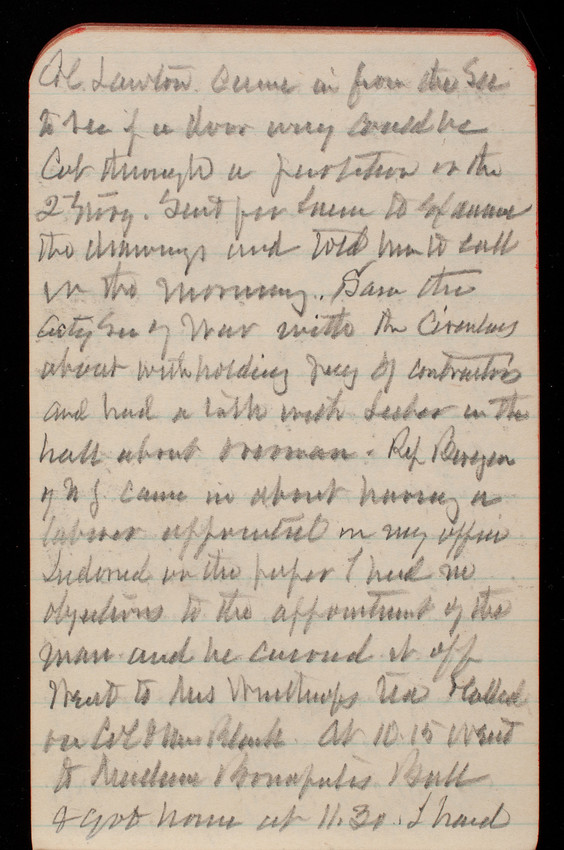 Col Lawton came in from the Sec
to see if a door way could be
Cut through a partition on the
2d Story. Sent for to examine
the drawings and told him to call
in the morning. Saw the
Actg Sec of War with the Circulars
about withholding pay of contractors
and had a talk with Lieber in the
hall about . Rep Bergen
of N J. came in about having a
laborer appointed in my office
Indorsed on the paper I had no
objections to the appointment of the
man and he carried it off
Went to Mrs Winthrops tea & called
on Col & Mrs Black At 10.15 went
to Madame Bonapartes Ball
& got home at 11.30. I had